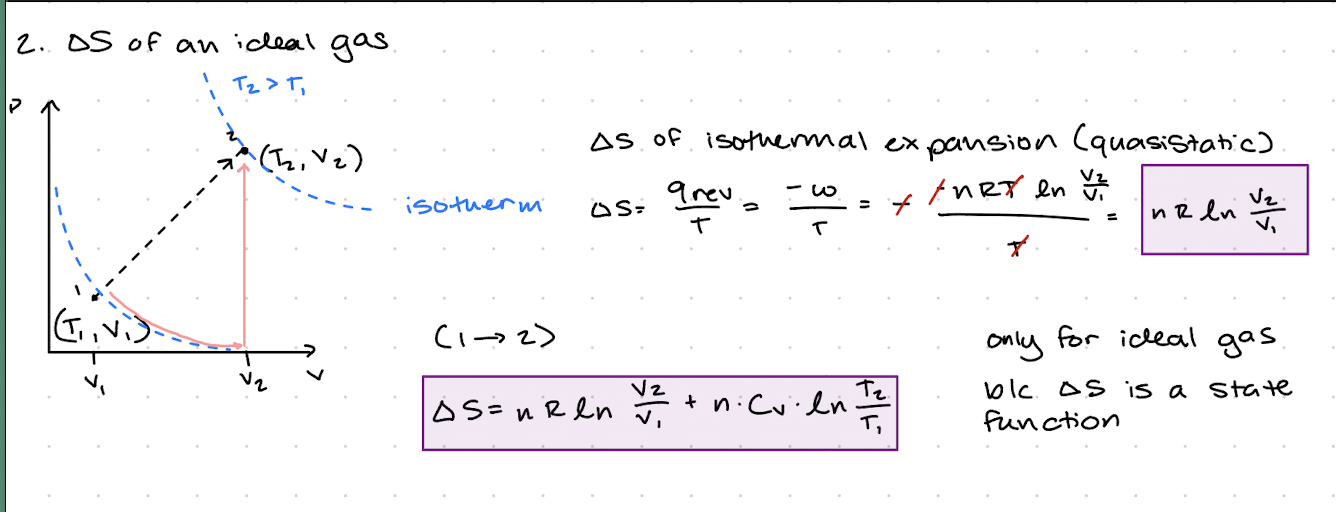 2. ΔS of an ideal gas
T₂ > T₁
P
2
(T₂, V₂)
isotherm
1
(T₁, V₁)
V₁
V₂
V
ΔS of isothermal expansion (quasistatic)
ΔS = qrev/T = -w/T = - -nRT ln V₂/V₁ / T = nR ln V₂/V₁
(1 → 2)
ΔS = nR ln V₂/V₁ + n · Cv · ln T₂/T₁
only for ideal gas
b/c ΔS is a state
function